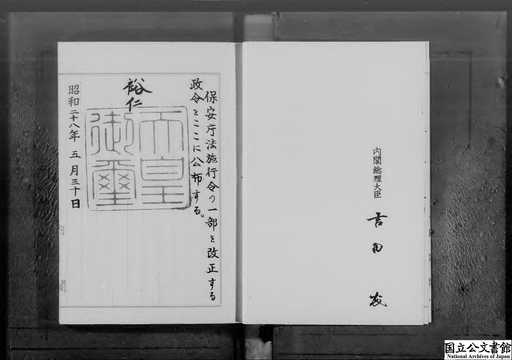 内閣総理大臣 吉田茂
保安庁法施行令の一部を改正する
政令をここに公布する。
裕仁
天皇
御璽
昭和二十八年 五月三十日
国立公文書館
National Archives of Japan